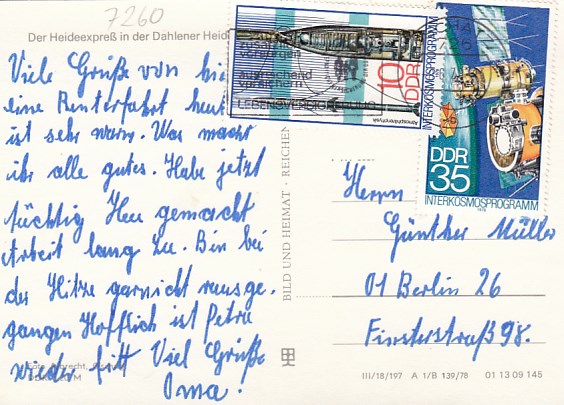 7260
Der Heideexpreß in der Dahlener Heid
Viele Grüße von
eine Rentnerfahrt heut
ist sehr warm. Was macht
ihr alle gutes. Habe jetzt
tüchtig Heu gemacht
Arbeit lang zu. Bin bei
der Hitze garnicht rausge.
gangen Hofftlich ist Petra
wieder fitt Viel Grüße
Oma.
BILD UND HEIMAT · REICHEN
10 DDR
Atmosphärenphysik
INTERKOSMOSPROGRAMM
DDR
35
INTERKOSMOSPROGRAMM
1978
Herrn
Günther Müller
01 Berlin 26
Finsterstraß 98.
III/18/197 A 1/B 139/78 01 13 09 145